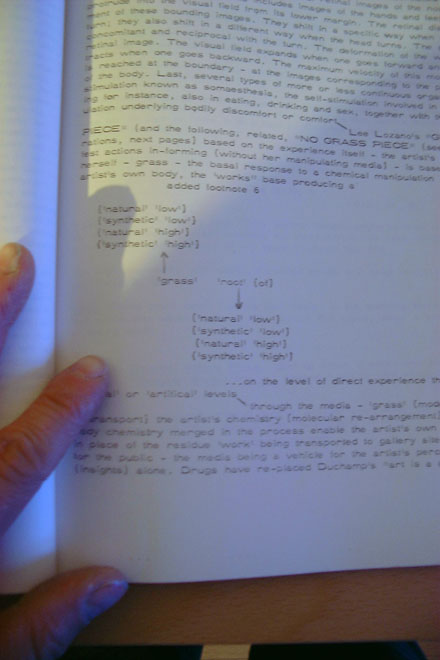 protrude into the visual field from its lower margin. The retinal
ment of these bounding images. They shift in a specific way
turn; they also shift in a different way when the head turns. The
concomitant and reciprocal with the turn. The deformation of the
retinal image. The visual field expands when one goes forward
tracts when one goes backward. The maximum velocity of this
is reached at the boundary - at the images corresponding to the
of the body. Last, several types of more or less continuous
stimulation known as somaesthesia, the self-stimulation involved
ing for instance, also in eating, drinking and sex, together with
ulation underlying bodily discomfort or comfort
Lee Lozano's
PIECE" (and the following, related, "NO GRASS PIECE"
rations, next pages) based on the experience itself - the artist's
test actions in-forming (without her manipulating media) - is
herself - grass - the basal response to a chemical manipulation
artist's own body, the 'works'' base producing a
added footnote 6
('natural' 'low')
('synthetic' 'low')
('natural' 'high')
('synthetic' 'high')
'grass' 'root' (of)
('natural' 'low')
('synthetic' 'low')
('natural' 'high')
('synthetic' 'high')
...on the level of direct experience
or 'artifical' levels
through the media - 'grass'
transport) the artist's chemistry (molecular re-arrangement
body chemistry merged in the process enable the artist's own
in place of the residue 'work' being transported to gallery
for the public - the media being a vehicle for the artist's
(insights) alone. Drugs have re-placed Duchamp's "art is a